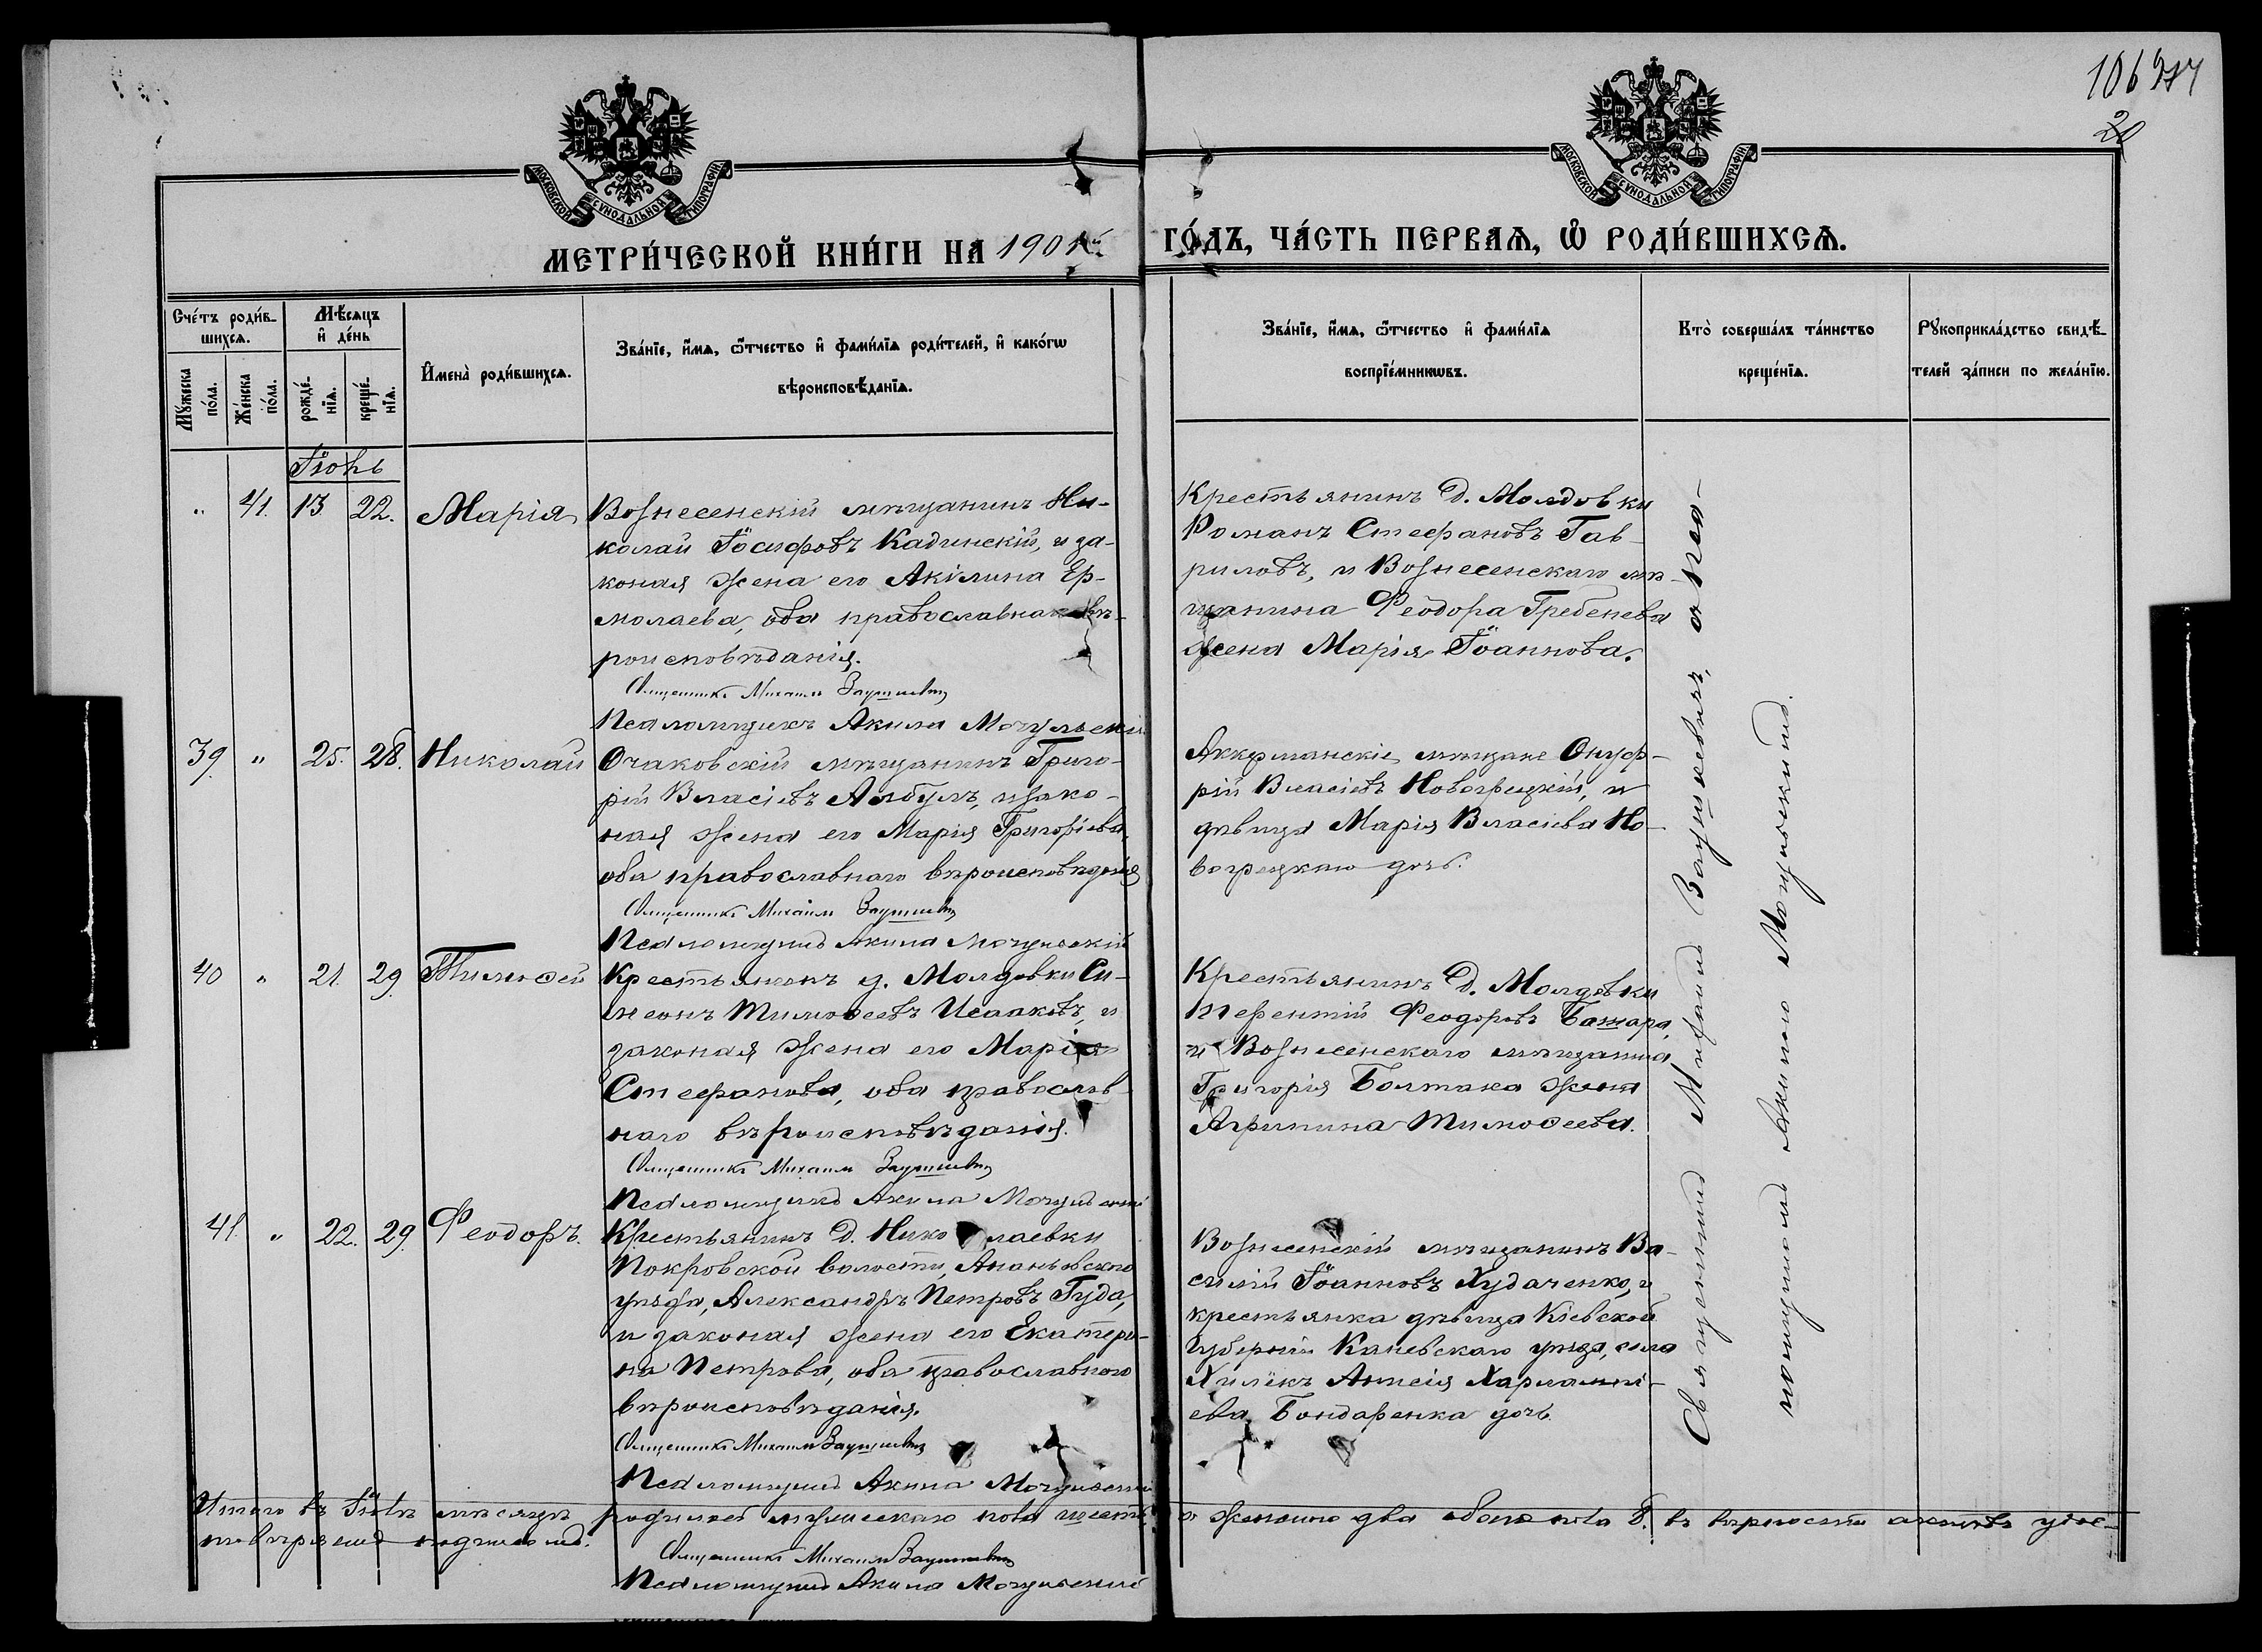 106
20
МОСКОВСКОЙ СѴНОДАЛЬНОЙ ТИПОГРАФІИ
МОСКОВСКОЙ СѴНОДАЛЬНОЙ ТИПОГРАФІИ
МЕТРИ́ЧЕСКОЙ КНИ́ГИ НА 1901й ГО́ДЪ, ЧА́СТЬ ПЕРВАѦ, Ѡ҆ РОДИ́ВШИХСѦ.
Сче́тъ роди́в-
шихсѧ.
Мꙋ́жеска
по́ла.
Же́нска
по́ла.
Мѣ́сѧцъ
и҆ де́нь
рожде́-
нїѧ.
креще́-
нїѧ.
И҆мена̀ роди́вшихсѧ.
Зва́нїе, и҆́мѧ, ѻ҆́тчество и҆ фами́лїѧ роди́телей, и҆ како́гѡ
вѣроисповѣ́данїѧ.
Зва́нїе, и҆́мѧ, ѻ҆́тчество и҆ фами́лїѧ
воспрїе́мникѡвъ.
Кто̀ соверша́лъ та́инство
креще́нїѧ.
Рꙋкоприкла́дство свидѣ́-
телей за́писи по жела́нїю.
Іюнь
" 41. 13 22. Марія
Вознесенскій мѣщанинъ Ни-
колай Іосифовъ Кадинскій, и за-
коная жена его Акилина Ер-
молаева, оба православнаго вѣ-
роисповѣданія.
Священникъ Михаилъ Заушкевич
Псаломщикъ Акила Могульскій
Крестьянинъ д. Молдовки
Романъ Стефановъ Гав-
риловъ, и Вознесенскаго мѣ-
щанина Феодора Гребенева
жена Марія Іоаннова.
39. " 25. 28. Николай
Очаковскій мѣщанинъ Григо-
рій Власіевъ Албулъ, и зако-
ная жена его Марія Григоріева,
оба православнаго вѣроисповѣданія
Священникъ Михаилъ Заушкевич
Псаломщикъ Акила Могульскій
Аккерманскіе мѣщане Онуф-
рій Власіевъ Новогрецкій, и
дѣвица Марія Власіева Но-
вогрецкаго дочь.
40 " 21. 29. Тимоѳей
Крестьянинъ д. Молдовки Си-
меонъ Тимоѳеевъ Исааковъ, и
законая жена его Марія
Стефанова, оба православ-
наго вѣроисповѣданія.
Священникъ Михаилъ Заушкевич
Псаломщикъ Акила Могульскій
Крестьянинъ д. Молдовки
Терентій Феодоровъ Башара,
и Вознесенскаго мѣщанина
Григорія Болтака жена
Агрипина Тимоѳеева.
41. " 22. 29. Феодоръ.
Крестьянинъ д. Николаевки
Покровской волости, Ананьевскаго
уѣзда, Александръ Петровъ Гуда,
и законая жена его Екатери-
на Петрова, оба православнаго
вѣроисповѣданія.
Священникъ Михаилъ Заушкевич
Псаломщикъ Акила Могульскій
Вознесенскій мѣщанинъ Ва-
силій Іоанновъ Худаченко, и
крестьянка дѣвица Кіевской
губерніи Каневскаго уѣзда, села
Хилёкъ Анисія Харлампі-
ева Бондаренка дочь.
Священникъ Михаилъ Заушкевичъ, съ Пса-
ломщикомъ Акилою Могульскимъ.
Итого въ Іюнѣ мѣсяцѣ родилось мужескаго пола шесть, а женскаго два обоего пола 8. въ вѣрности актовъ удос-
товѣряемъ подписомъ.
Священникъ Михаилъ Заушкевич
Псаломщикъ Акила Могульскій